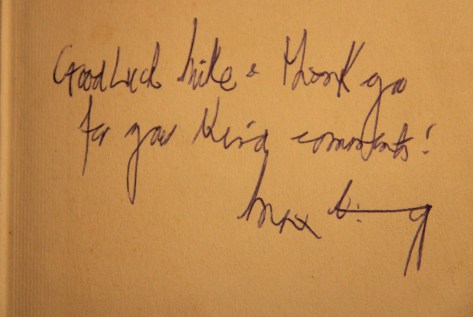 Good Luck Mike & Thank you
for your kind comments!
Max